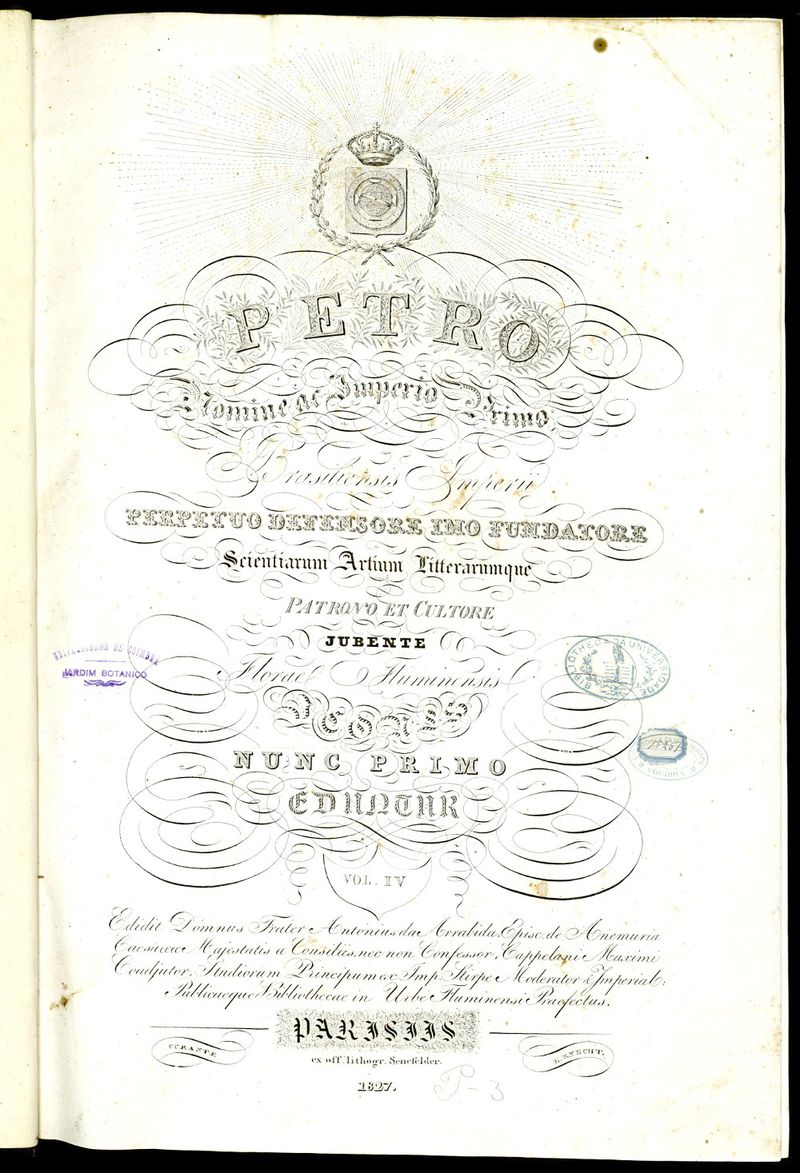 PETRO
Nomine ac Imperio Primo
Brasiliensis Imperii
PERPETUO DEFENSORE IMO FUNDATORE
Scientiarum Artium Litterarumque
PATRONO ET CULTORE
JUBENTE
Florae Fluminensis
ICONES
NUNC PRIMO
EDUNTUR
VOL. IV
Edidit Domnus Frater Antonius da Arrabida, Episc. de Anemuria
Caesareae Majestatis a Consiliis, nec non Confessor, Cappelani Maximi
Coadjutor, Studiorum Principum ex Imp. Stirpe Moderator & Imperial:
Publicaeque Bibliothecae in Urbe Fluminensi Praefectus.
PARISIIS
ex off. lithogr. Senefelder.
1827.
P-3
UNIVERSIDADE DE COIMBRA
JARDIM BOTANICO
BIBLIOTHECA DA UNIVERSIDADE